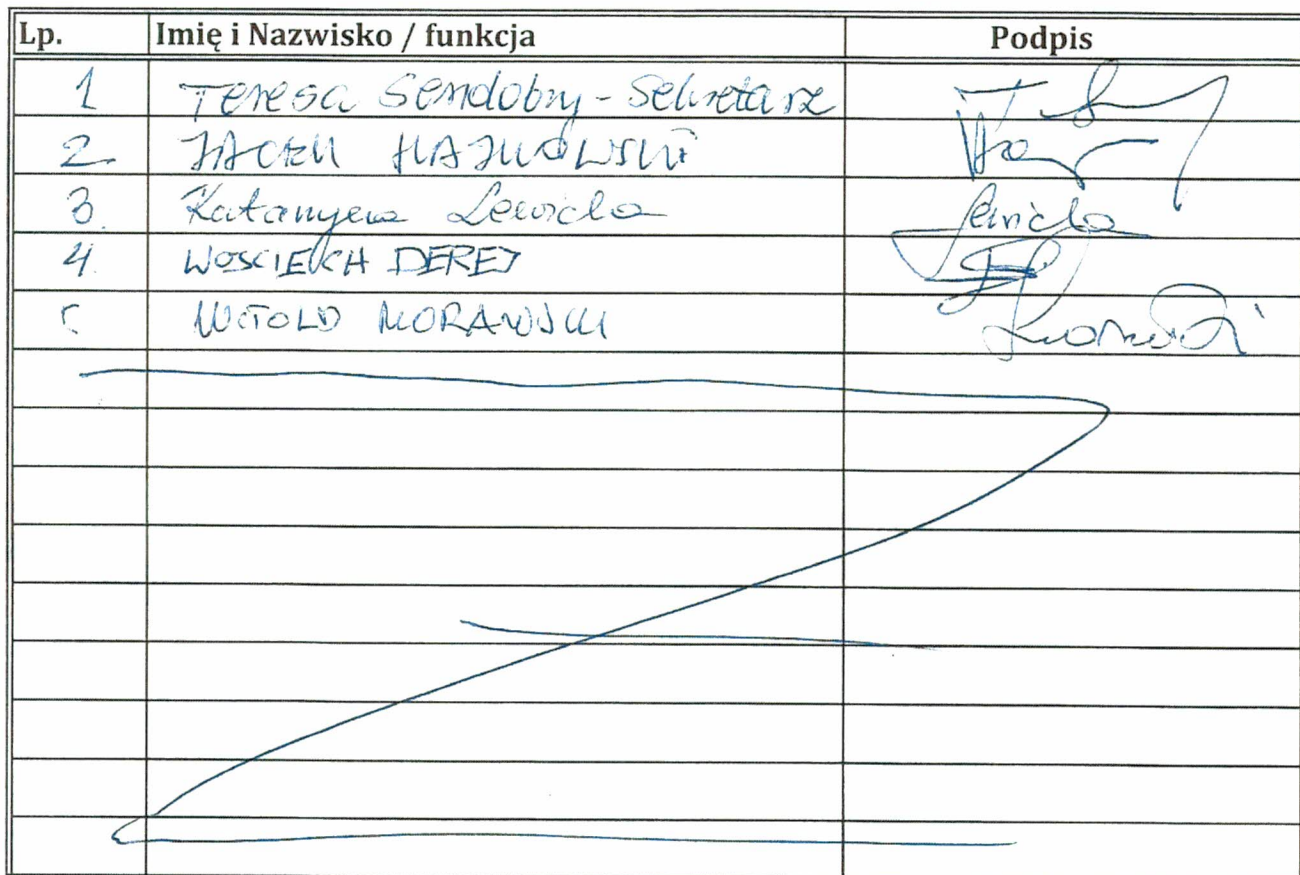 Lp. Imię i Nazwisko / funkcja Podpis
1 Teresa Sendobry - Sekretarz
2. JACEK HAJKOWSKI
3. Katarzyna Lewicka Lewicka
4. WOJCIECH DEREJ
5 WITOLD MORAWSKI